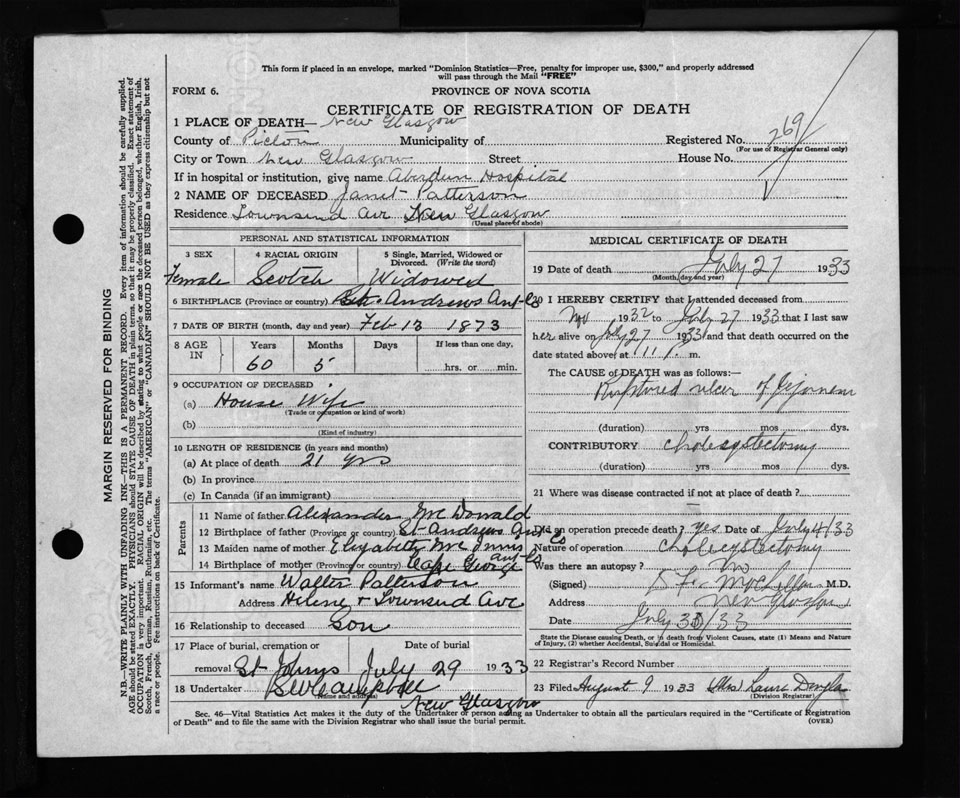 This form if placed in an envelope, marked "Dominion Statistics—Free, penalty for improper use, $300," and properly addressed
will pass through the Mail "FREE"
FORM 6.
PROVINCE OF NOVA SCOTIA
CERTIFICATE OF REGISTRATION OF DEATH
1 PLACE OF DEATH— New Glasgow
County of Pictou Municipality of Registered No. 269
(For use of Registrar General only)
City or Town New Glasgow Street House No.
If in hospital or institution, give name Aberdeen Hospital
2 NAME OF DECEASED Janet Patterson
Residence Townsend Av New Glasgow
(Usual place of abode)
PERSONAL AND STATISTICAL INFORMATION
3 SEX 4 RACIAL ORIGIN 5 Single, Married, Widowed or
Divorced. (Write the word)
Female Scotch Widowed
6 BIRTHPLACE (Province or country) St. Andrews Ant Co
7 DATE OF BIRTH (month, day and year) Feb 13 1873
8 AGE IN Years Months Days If less than one day,
60 5 hrs. or min.
9 OCCUPATION OF DECEASED
(a) House Wife
(Trade or occupation or kind of work)
(b)
(Kind of industry)
10 LENGTH OF RESIDENCE (in years and months)
(a) At place of death 21 yrs
(b) In province
(c) In Canada (if an immigrant)
Parents
11 Name of father Alexander McDonald
12 Birthplace of father (Province or country) St Andrews Ant Co
13 Maiden name of mother Elizabeth McInnis
14 Birthplace of mother (Province or country) Cape George Ant Co
15 Informant's name Walter Patterson
Address Helene & Townsend Ave
16 Relationship to deceased Son
17 Place of burial, cremation or Date of burial
removal St Johns July 29 1933
18 Undertaker Campbell
(Name and address)
New Glasgow
MEDICAL CERTIFICATE OF DEATH
19 Date of death July 27 1933
(Month, day and year)
20 I HEREBY CERTIFY that I attended deceased from
Nov 1932 to July 27 1933 that I last saw
her alive on July 27 1933 and that death occurred on the
date stated above, at 11 m.
The CAUSE of DEATH was as follows:
Ruptured ulcer of Jejunum
(duration) yrs mos dys.
CONTRIBUTORY Cholecystectomy
(duration) yrs mos dys.
21 Where was disease contracted if not at place of death?
Did an operation precede death? yes Date of July 4/33
Nature of operation Cholecystectomy
Was there an autopsy? no
(Signed) M.D.
Address New Glasgow
Date July /33
State the Disease causing Death, or in death from Violent Causes, state (1) Means and Nature
of Injury, (2) whether Accidental, Suicidal or Homicidal.
22 Registrar's Record Number
23 Filed August 9 1933
(Division Registrar)
Sec. 46—Vital Statistics Act makes it the duty of the Undertaker or person acting as Undertaker to obtain all the particulars required in the "Certificate of Registration
of Death" and to file the same with the Division Registrar who shall issue the burial permit. (OVER)
MARGIN RESERVED FOR BINDING
N.B.—WRITE PLAINLY WITH UNFADING INK—THIS IS A PERMANENT RECORD. Every item of information should be carefully supplied.
AGE should be stated EXACTLY. PHYSICIANS should STATE CAUSE OF DEATH in plain terms, so that it may be properly classified. Exact statement of
OCCUPATION is very important. RACIAL ORIGIN will be described by stating to what people or race the deceased person belonged, whether English, Irish,
Scotch, French, German, Russian, Ruthenian, etc. The terms "AMERICAN" or "CANADIAN" SHOULD NOT BE USED as they express citizenship but not
a race or people. Fee instructions on back of Certificate.